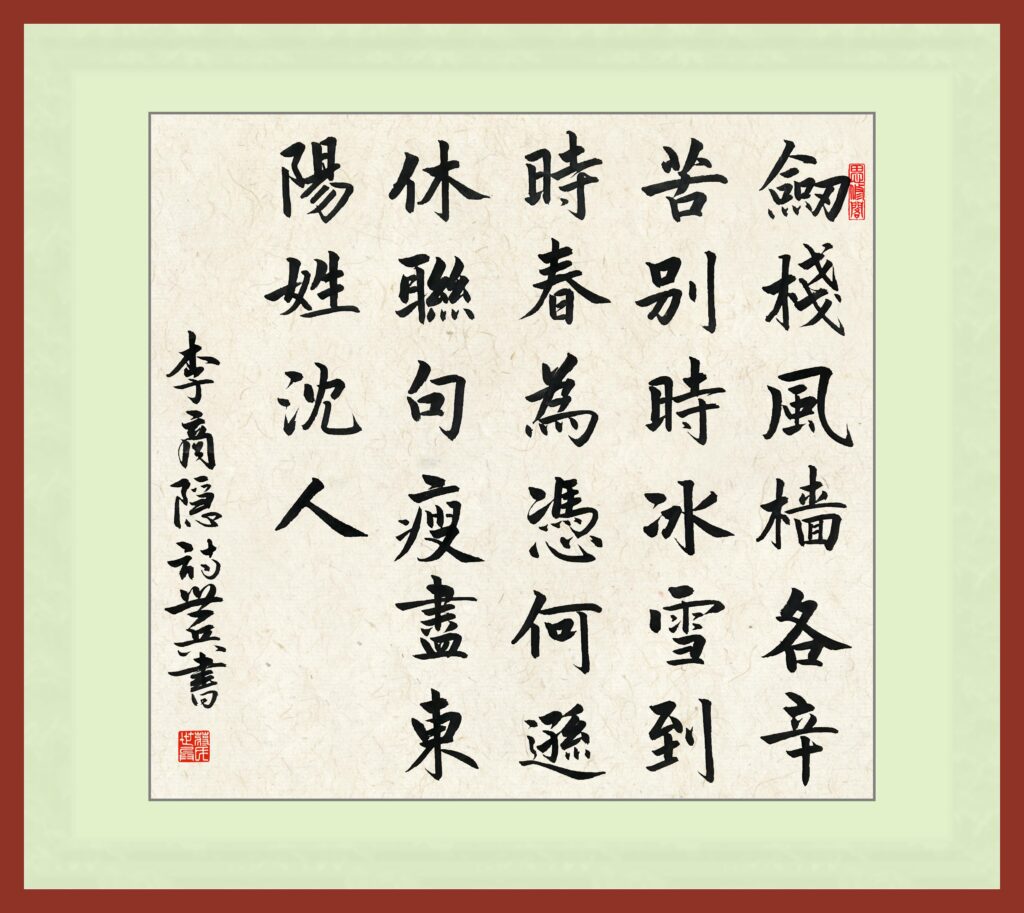 思修閣
劔棧風檣各辛
苦别時冰雪到
時春為憑何遜
休聯句瘦盡東
陽姓沈人
李商隐詩世書